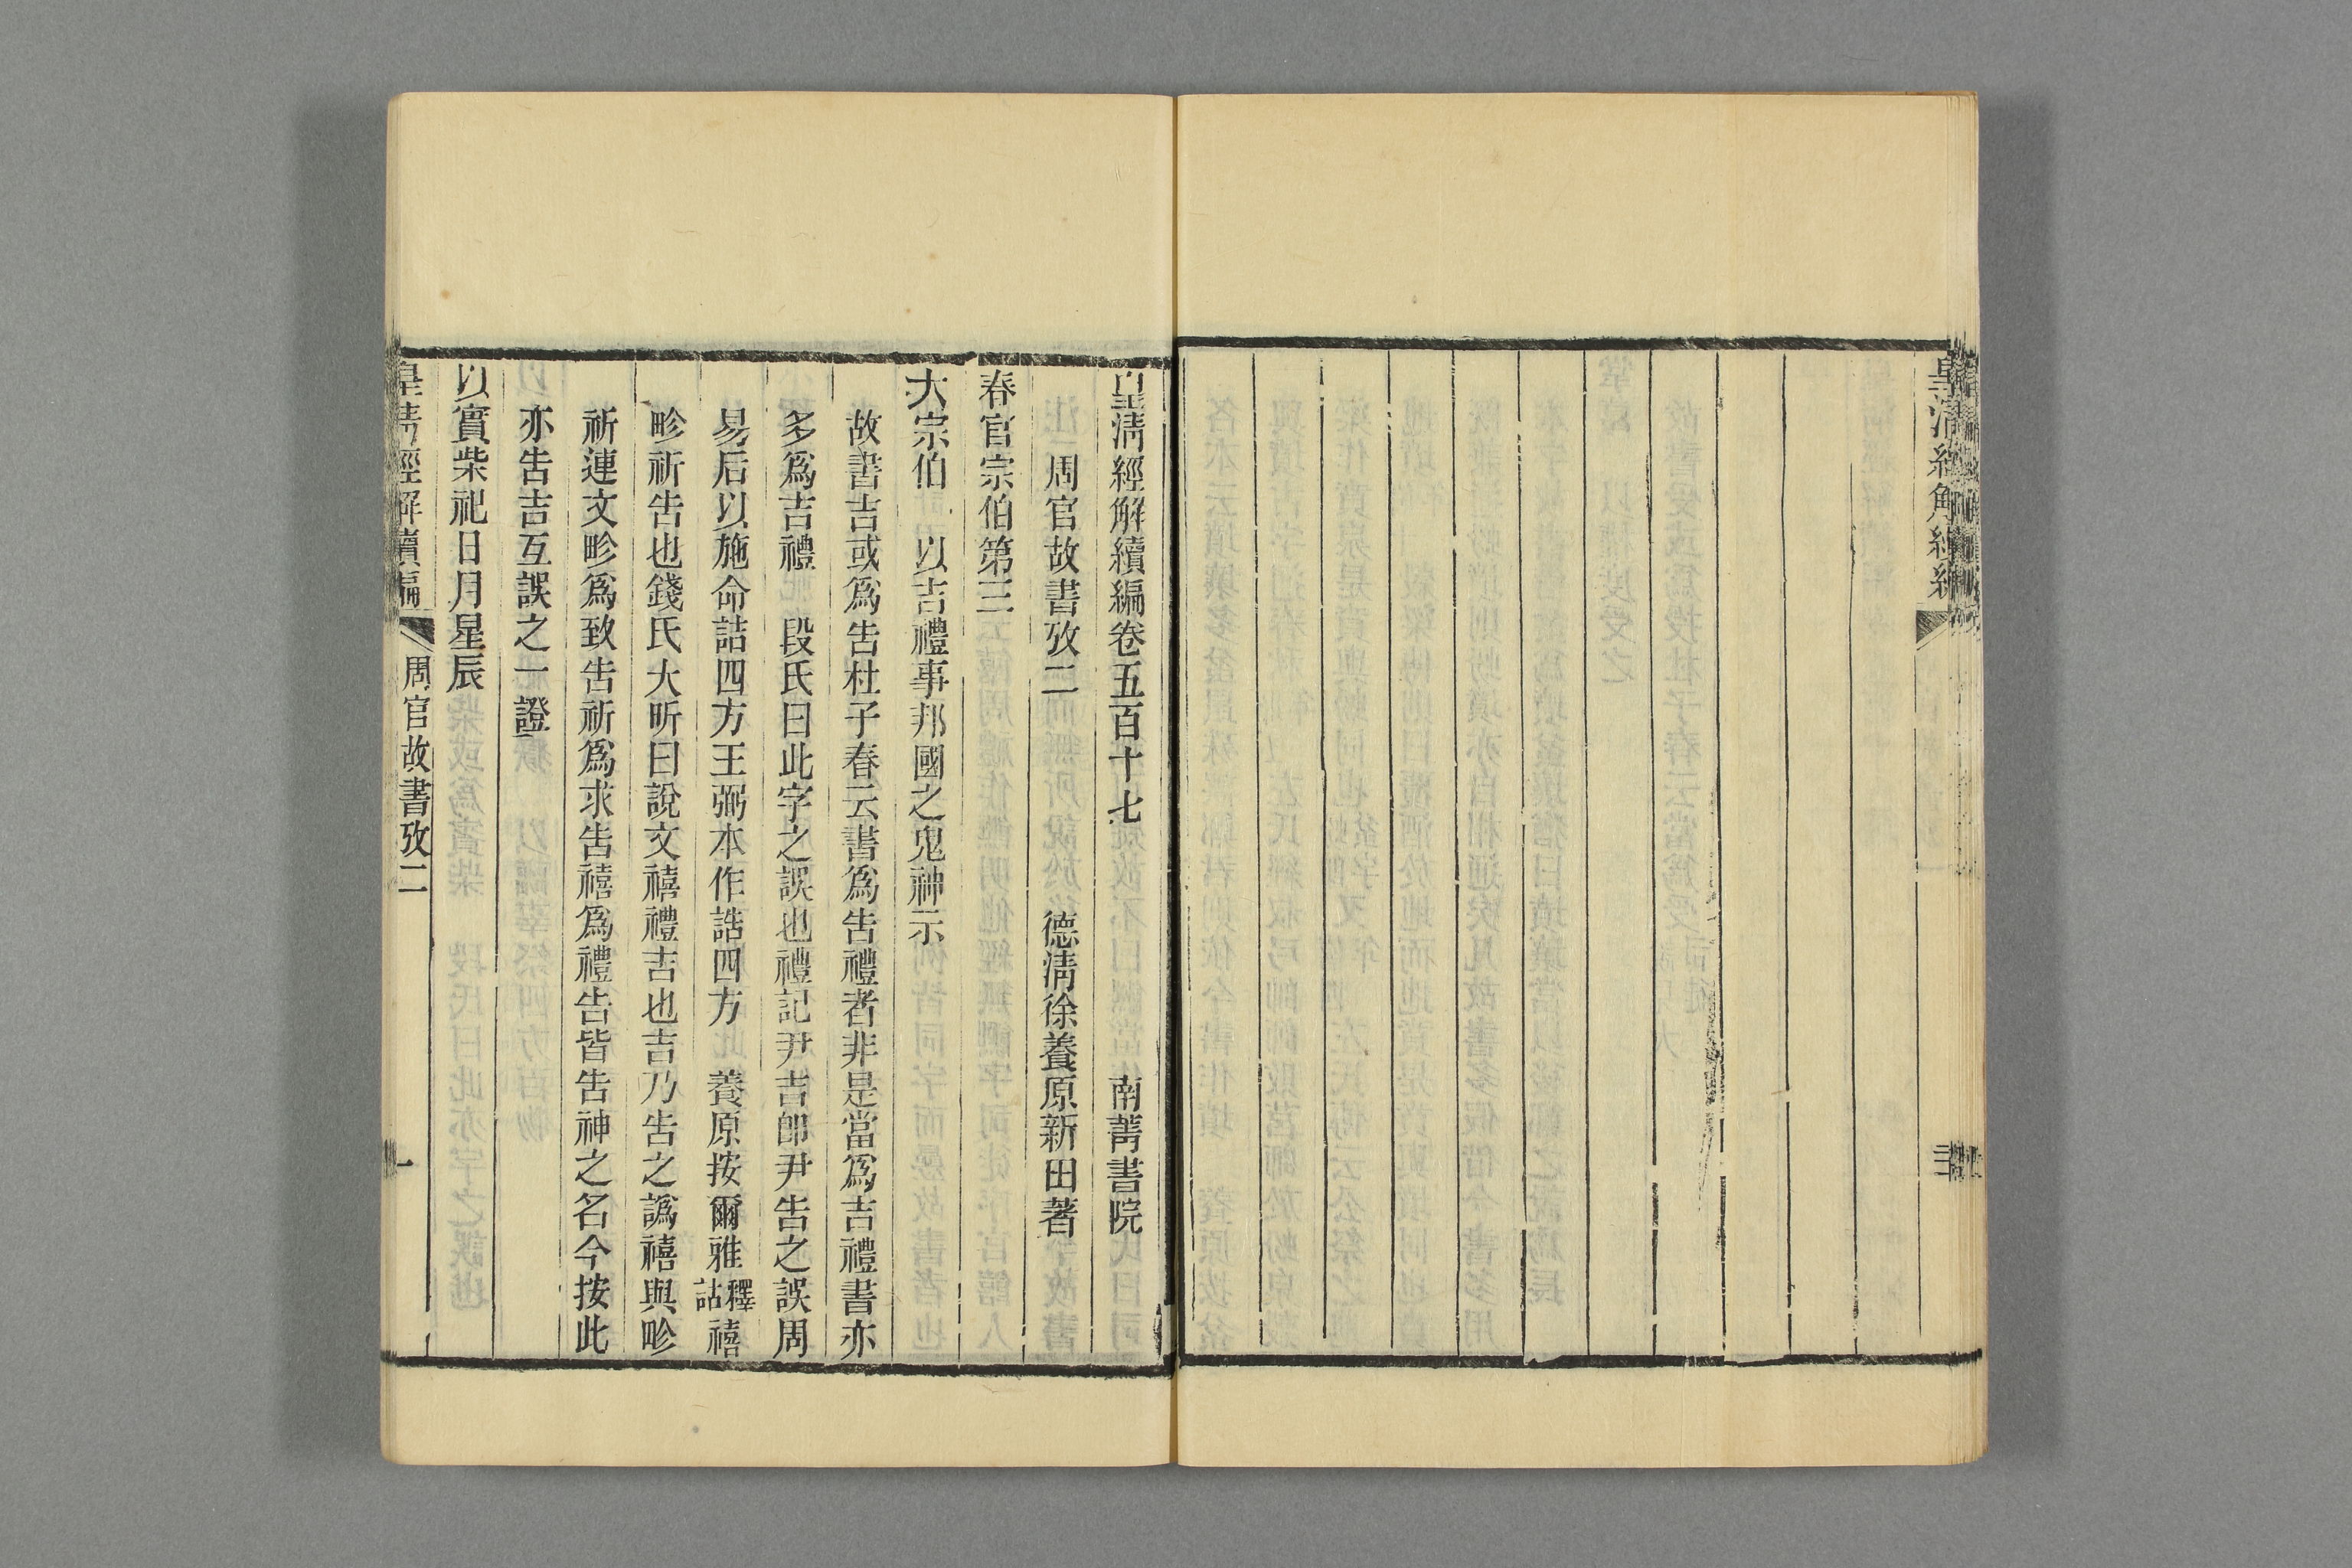 皇清經解續編
皇清經解續編卷五百十七 南菁書院
周官故書攷二 德清徐養原新田著
春官宗伯第三
大宗伯 以吉禮事邦國之鬼神示
故書吉或爲告杜子春云書爲告禮者非是當爲吉禮書亦
多爲吉禮 段氏曰此字之誤也禮記尹吉卽尹告之誤周
易后以施命詰四方王弼本作誥四方 養原按爾雅釋詁禧
畛祈告也錢氏大昕曰說文禧禮吉也吉乃告之譌禧與畛
祈連文畛爲致告祈爲求告禧爲禮告皆告神之名今按此
亦告吉互誤之一證
以實柴祀日月星辰
皇清經解續編 周官故書攷二 一